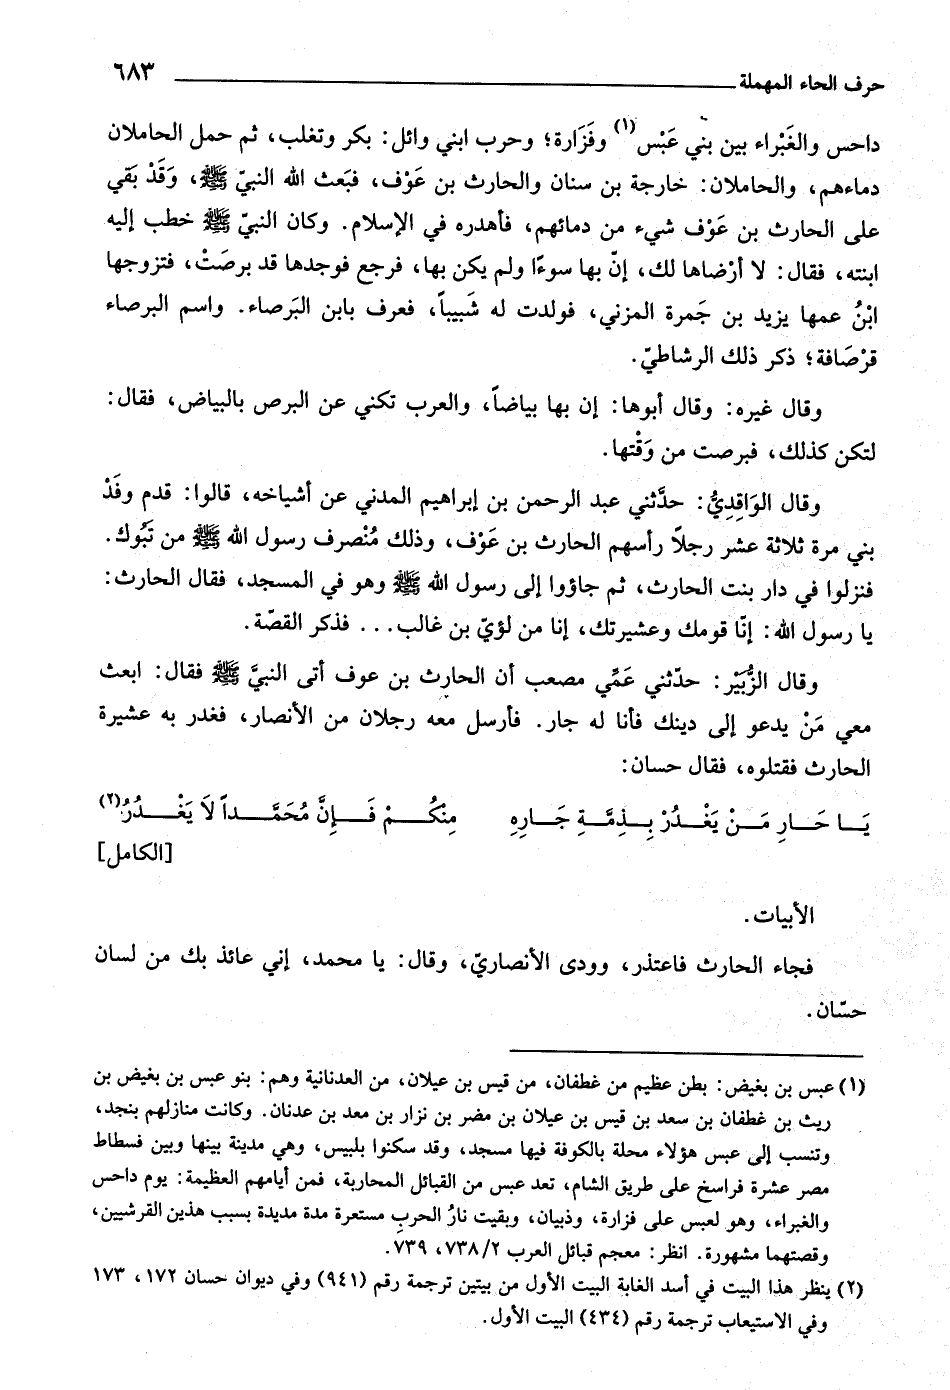 حرف الحاء المهملة ٦٨٣
داحس والغَبْراء بين بني عَبْس(١) وفَزَارة؛ وحرب ابني وائل: بكر وتغلب، ثم حمل الحاملان
دماءهم، والحاملان: خارجة بن سنان والحارث بن عَوْف، فبَعث الله النبيّ ﷺ، وَقَدْ بَقي
على الحارث بن عَوْف شيء من دمائهم، فأهدره في الإسلام. وكان النبيّ ﷺ خطب إليه
ابنته، فقال: لا أرْضاها لك، إنّ بها سوءًا ولم يكن بها، فرجع فوجدها قد برصَتْ، فتزوجها
ابْنُ عمها يزيد بن جَمرة المزني، فولدت له شَبيباً، فعرف بابن البَرصاء. واسم البرصاء
قرْصَافة؛ ذكر ذلك الرشاطيّ.
وقال غيره: وقال أبوها: إن بها بياضاً، والعرب تكني عن البرص بالبياض، فقال:
لتكن كذلك، فبرصت من وَقْتها.
وقال الوَاقِدِيُّ: حدَّثني عبد الرحمن بن إبراهيم المدني عن أشياخه، قالوا: قدم وفَدْ
بني مرة ثلاثة عشر رجلاً رأسهم الحارث بن عَوْف، وذلك مُنْصرف رسول الله ﷺ من تَبُوك.
فنزلوا في دار بنت الحارث، ثم جاؤوا إلى رسول الله ﷺ وهو في المسجد، فقال الحارث:
يا رسول الله: إنّا قومك وعشيرتك، إنا من لؤيّ بن غالب... فذكر القصّة.
وقال الزُّبَيْر: حدّثني عَمِّي مصعب أن الحارث بن عوف أتى النبيَّ ﷺ فقال: ابعث
معي مَنْ يدعو إلى دينك فأنا له جار. فأرسل معه رجلان من الأنصار، فغدر به عشيرة
الحارث فقتلوه، فقال حسان:
يَا حَارِ مَنْ يَغْدُرْ بِذِمَّةِ جَارِهِ مِنْكُمْ فَإِنَّ مُحَمَّداً لَا يَغْدُرُ(٢)
[الكامل]
الأبيات.
فجاء الحارث فاعتذر، وودى الأنصاريّ، وقال: يا محمد، إني عائذ بك من لسان
حسّان.
(١) عبس بن بغيض: بطن عظيم من غطفان، من قيس بن عيلان، من العدنانية وهم: بنو عبس بن بغيض بن
ريث بن غطفان بن سعد بن قيس بن عيلان بن مضر بن نزار بن معد بن عدنان. وكانت منازلهم بنجد،
وتنسب إلى عبس هؤلاء محلة بالكوفة فيها مسجد، وقد سكنوا بلبيس، وهي مدينة بينها وبين فسطاط
مصر عشرة فراسخ على طريق الشام، تعد عبس من القبائل المحاربة، فمن أيامهم العظيمة: يوم داحس
والغبراء، وهو لعبس على فزارة، وذبيان، وبقيت نارُ الحربِ مستعرة مدة مديدة بسبب هذين القرشيين،
وقصتهما مشهورة. انظر: معجم قبائل العرب ٧٣٨/٢، ٧٣٩.
(٢) ينظر هذا البيت في أسد الغابة البيت الأول من بيتين ترجمة رقم (٩٤١) وفي ديوان حسان ١٧٢، ١٧٣
وفي الاستيعاب ترجمة رقم (٤٣٤) البيت الأول.